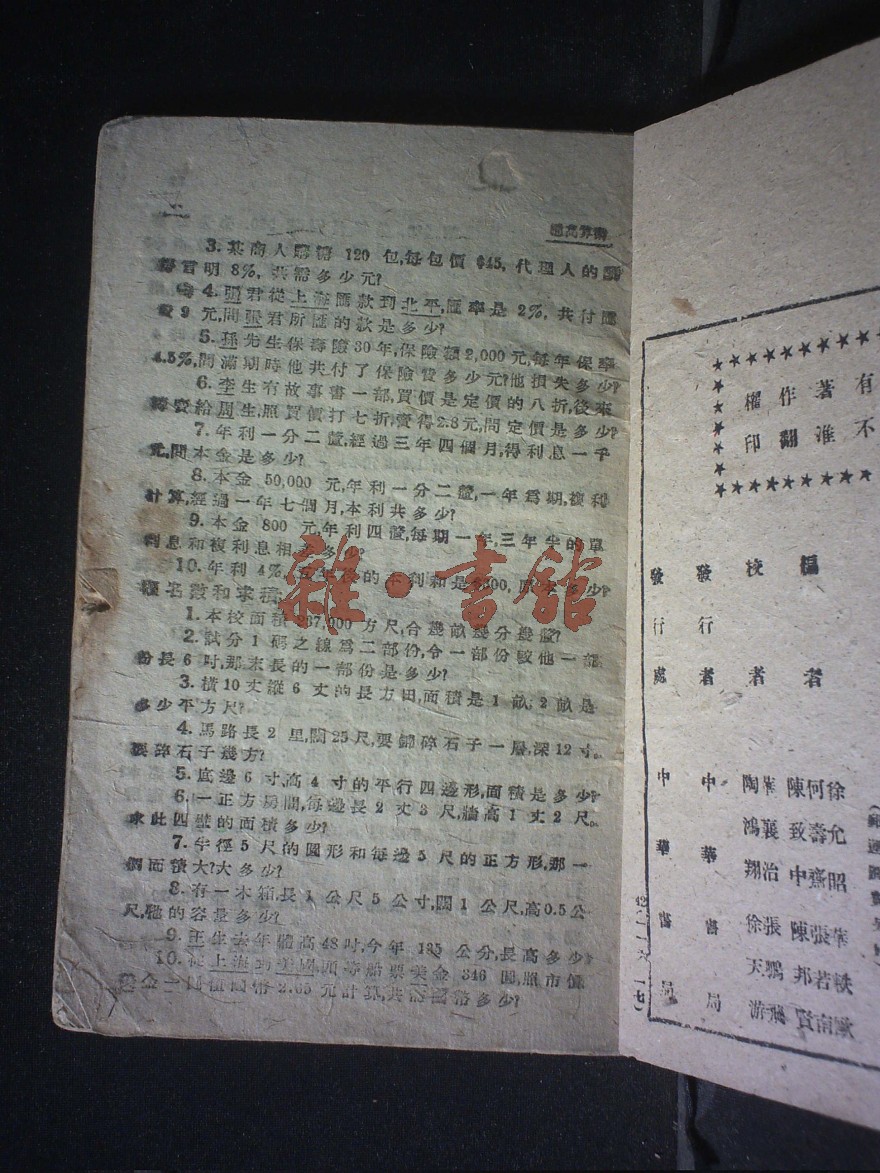 二
3. 某商人購糖 120 包,每包價 $45, 代理人的
明 8%, 共需多少元?
4. 張君從上海匯款到北平,匯率是 2%, 共付匯
費 9 元,問張君所匯的款是多少?
5. 孫先生保壽險30年,保險額2,000元,每年保率
4.5%,問滿期時他共付了保險費多少元?他損失多少?
6. 李生有故事書一部,買價是定價的八折,後來
轉賣給周生,照買價打七折,賣得2.8元,問定價是多少?
7. 年利一分二釐,經過三年四個月,得利息一千
元,問本金是多少?
8. 本金 50,000 元,年利一分二釐,一年爲期,複利
計算,經過一年七個月,本利共多少?
9. 本金 800 元,年利四釐,每期一年,三年半的單
利息和複利息相差多少?
10. 年利 4%, 的本利和是 多少?
名數和求積
1. 本校面積 237,000 方尺,合幾畝幾分幾釐?
2. 試分 1 碼之線爲二部份,令一部份較他一部
份長 6 吋,那末長的一部份是多少?
3. 橫10丈縱 6 丈的長方田,面積是 1 畝, 2 畝是
多少平方尺?
4. 馬路長 2 里,闊25尺,要鋪碎石子一層,深12寸。
要碎石子幾方?
5. 底邊 6 寸,高 4 寸的平行四邊形,面積是多少?
6. 一正方房間,每邊長 2 丈 3 尺,牆高 1 丈 2 尺。
求此四壁的面積多少?
7. 半徑 5 尺的圓形和每邊 5 尺的正方形,那一
個面積大?大多少?
8. 有一木箱,長 1 公尺 5 公寸,闊 1 公尺,高0.5公
尺,牠的容量多少?
9. 王生去年體高48吋,今年 135 公分,長高多少?
10. 從上海到美國頭等船票美金 346 圓,照市價
美金一圓值國幣 2.05 元計算,共需國幣多少?
雜·書館
有著作權
不准翻印
編者
徐允昭
何壽齋
陳致中
華襄治
陶鴻翔
華軼歐
張若南
陳邦賢
張鵬飛
徐天游
校者
發行者
中華書局
發行處
中華書局